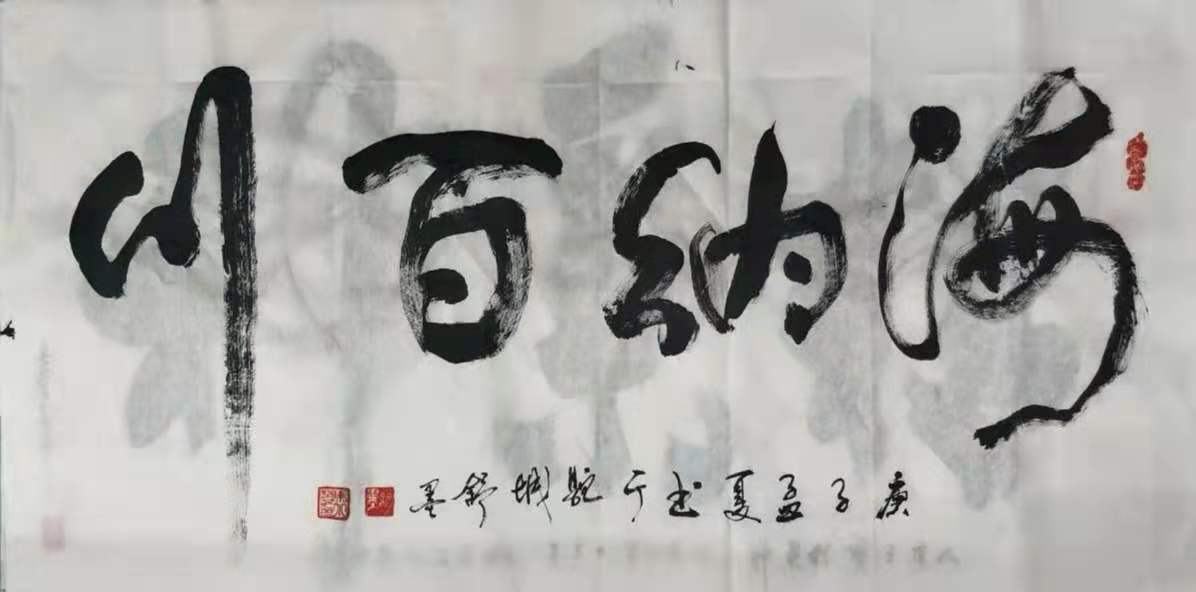 海纳百川
庚子孟夏书于驼城舒墨